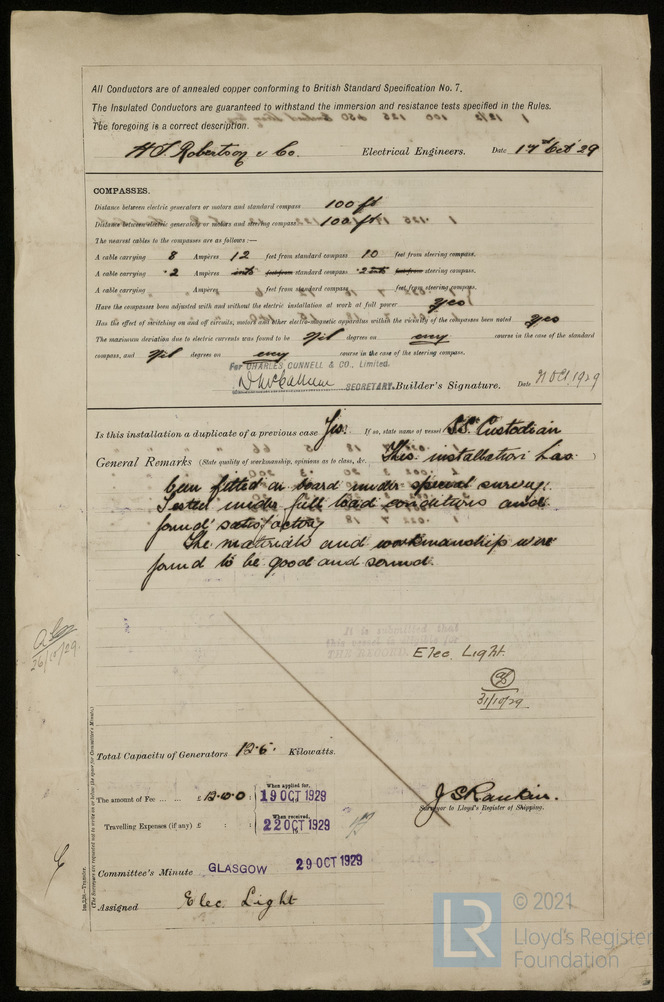 All Conductors are of annealed copper conforming to British Standard Specification No. 7.
The Insulated Conductors are guaranteed to withstand the immersion and resistance tests specified in the Rules.
The foregoing is a correct description.
H.S. Robertson & Co. Electrical Engineers. Date 17th Oct 29
COMPASSES.
Distance between electric generators or motors and standard compass 100 ft
Distance between electric generators or motors and steering compass 100 ft
The nearest cables to the compasses are as follows:—
A cable carrying 8 Ampères 12 feet from standard compass 10 feet from steering compass.
A cable carrying .2 Ampères into feet from standard compass .2 into feet from steering compass.
A cable carrying Ampères feet from standard compass feet from steering compass.
Have the compasses been adjusted with and without the electric installation at work at full power yes
Has the effect of switching on and off circuits, motors and other electro-magnetic apparatus within the vicinity of the compasses been noted yes
The maximum deviation due to electric currents was found to be Nil degrees on any course in the case of the standard
compass, and Nil degrees on any course in the case of the steering compass.
For CHARLES CONNELL & CO., Limited.
SECRETARY. Builder's Signature. Date Oct. 1929
Is this installation a duplicate of a previous case Yes. If so, state name of vessel S.S. Custodian
General Remarks (State quality of workmanship, opinions as to class, &c. This installation has
been fitted on board under special survey.
Tested under full load conditions and
found satisfactory
The materials and workmanship were
found to be good and sound.
It is submitted that
this vessel is eligible for
THE RECORD.
Elec. Light.
31/10/29
26/10/29.
Total Capacity of Generators 12.5 Kilowatts.
J S Rankin.
Surveyor to Lloyd's Register of Shipping.
The amount of Fee ... ... £ 12.0.0 When applied for, 19 OCT 1929
Travelling Expenses (if any) £ : : When received, 22 OCT 1929
Committee's Minute GLASGOW 29 OCT 1929
Assigned Elec. Light
(The Surveyors are requested not to write on or below the space for Committee's Minute.)
LR
© 2021
Lloyd's Register
Foundation